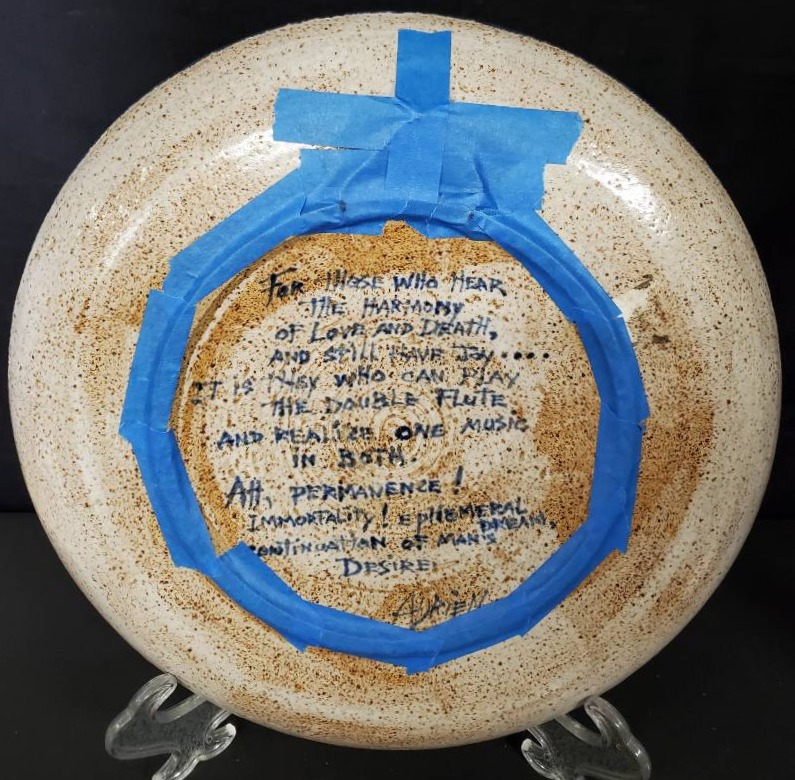 FOR THOSE WHO HEAR
THE HARMONY
OF LOVE AND DEATH,
AND STILL HAVE JOY....
IT IS THEY WHO CAN PLAY
THE DOUBLE FLUTE
AND REALIZE ONE MUSIC
IN BOTH.
AH, PERMANENCE!
IMMORTALITY! EPHEMERAL
DREAM,
CONTINUATION OF MAN'S
DESIRE.
ADRIEN